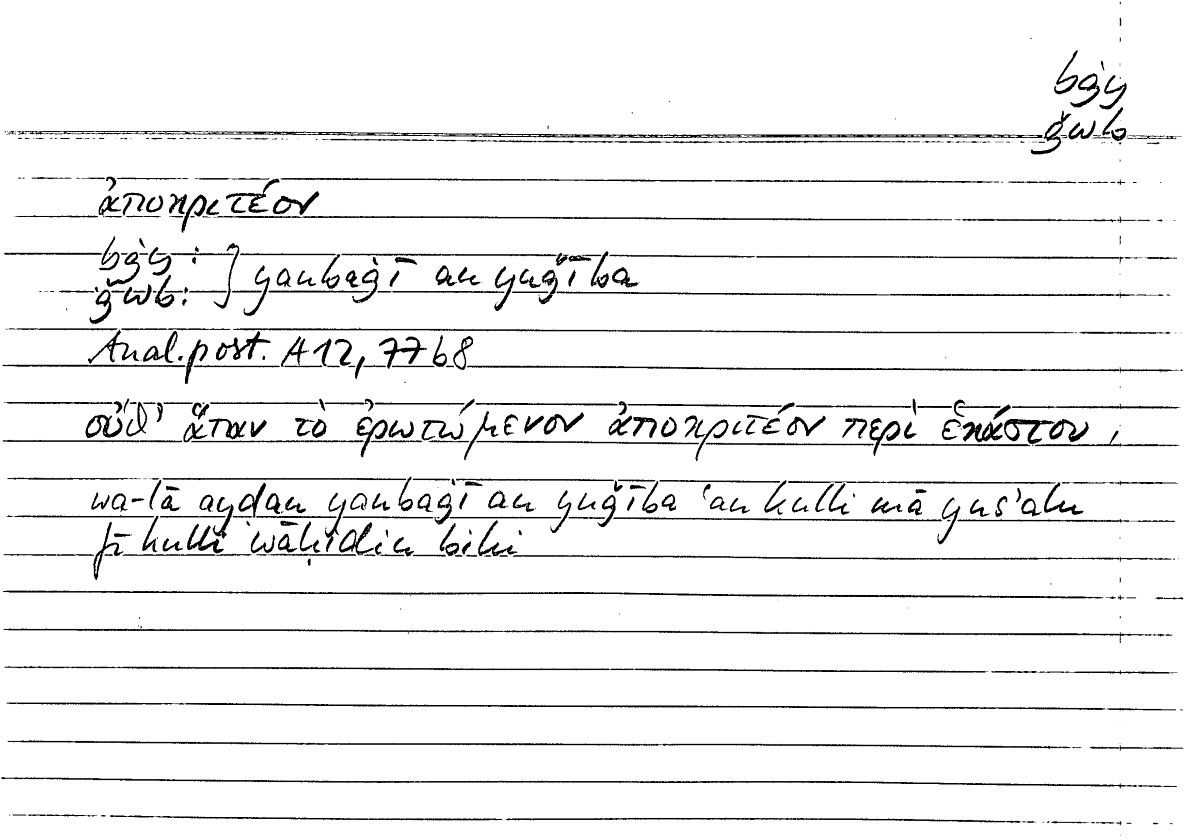 bġy
ǧwb
ἀποκριτέον
bġy : } yanbaġī an yuǧība
ǧwb:
Anal. post. A 12, 77 b 8
οὔθ' ἅπαν τὸ ἐρωτώμενον ἀποκριτέον περὶ ἑκάστου,
wa-lā ayḍan yanbaġī an yuǧība ʿan kulli mā yusʾalu
fī kulli wāḥidin bihi